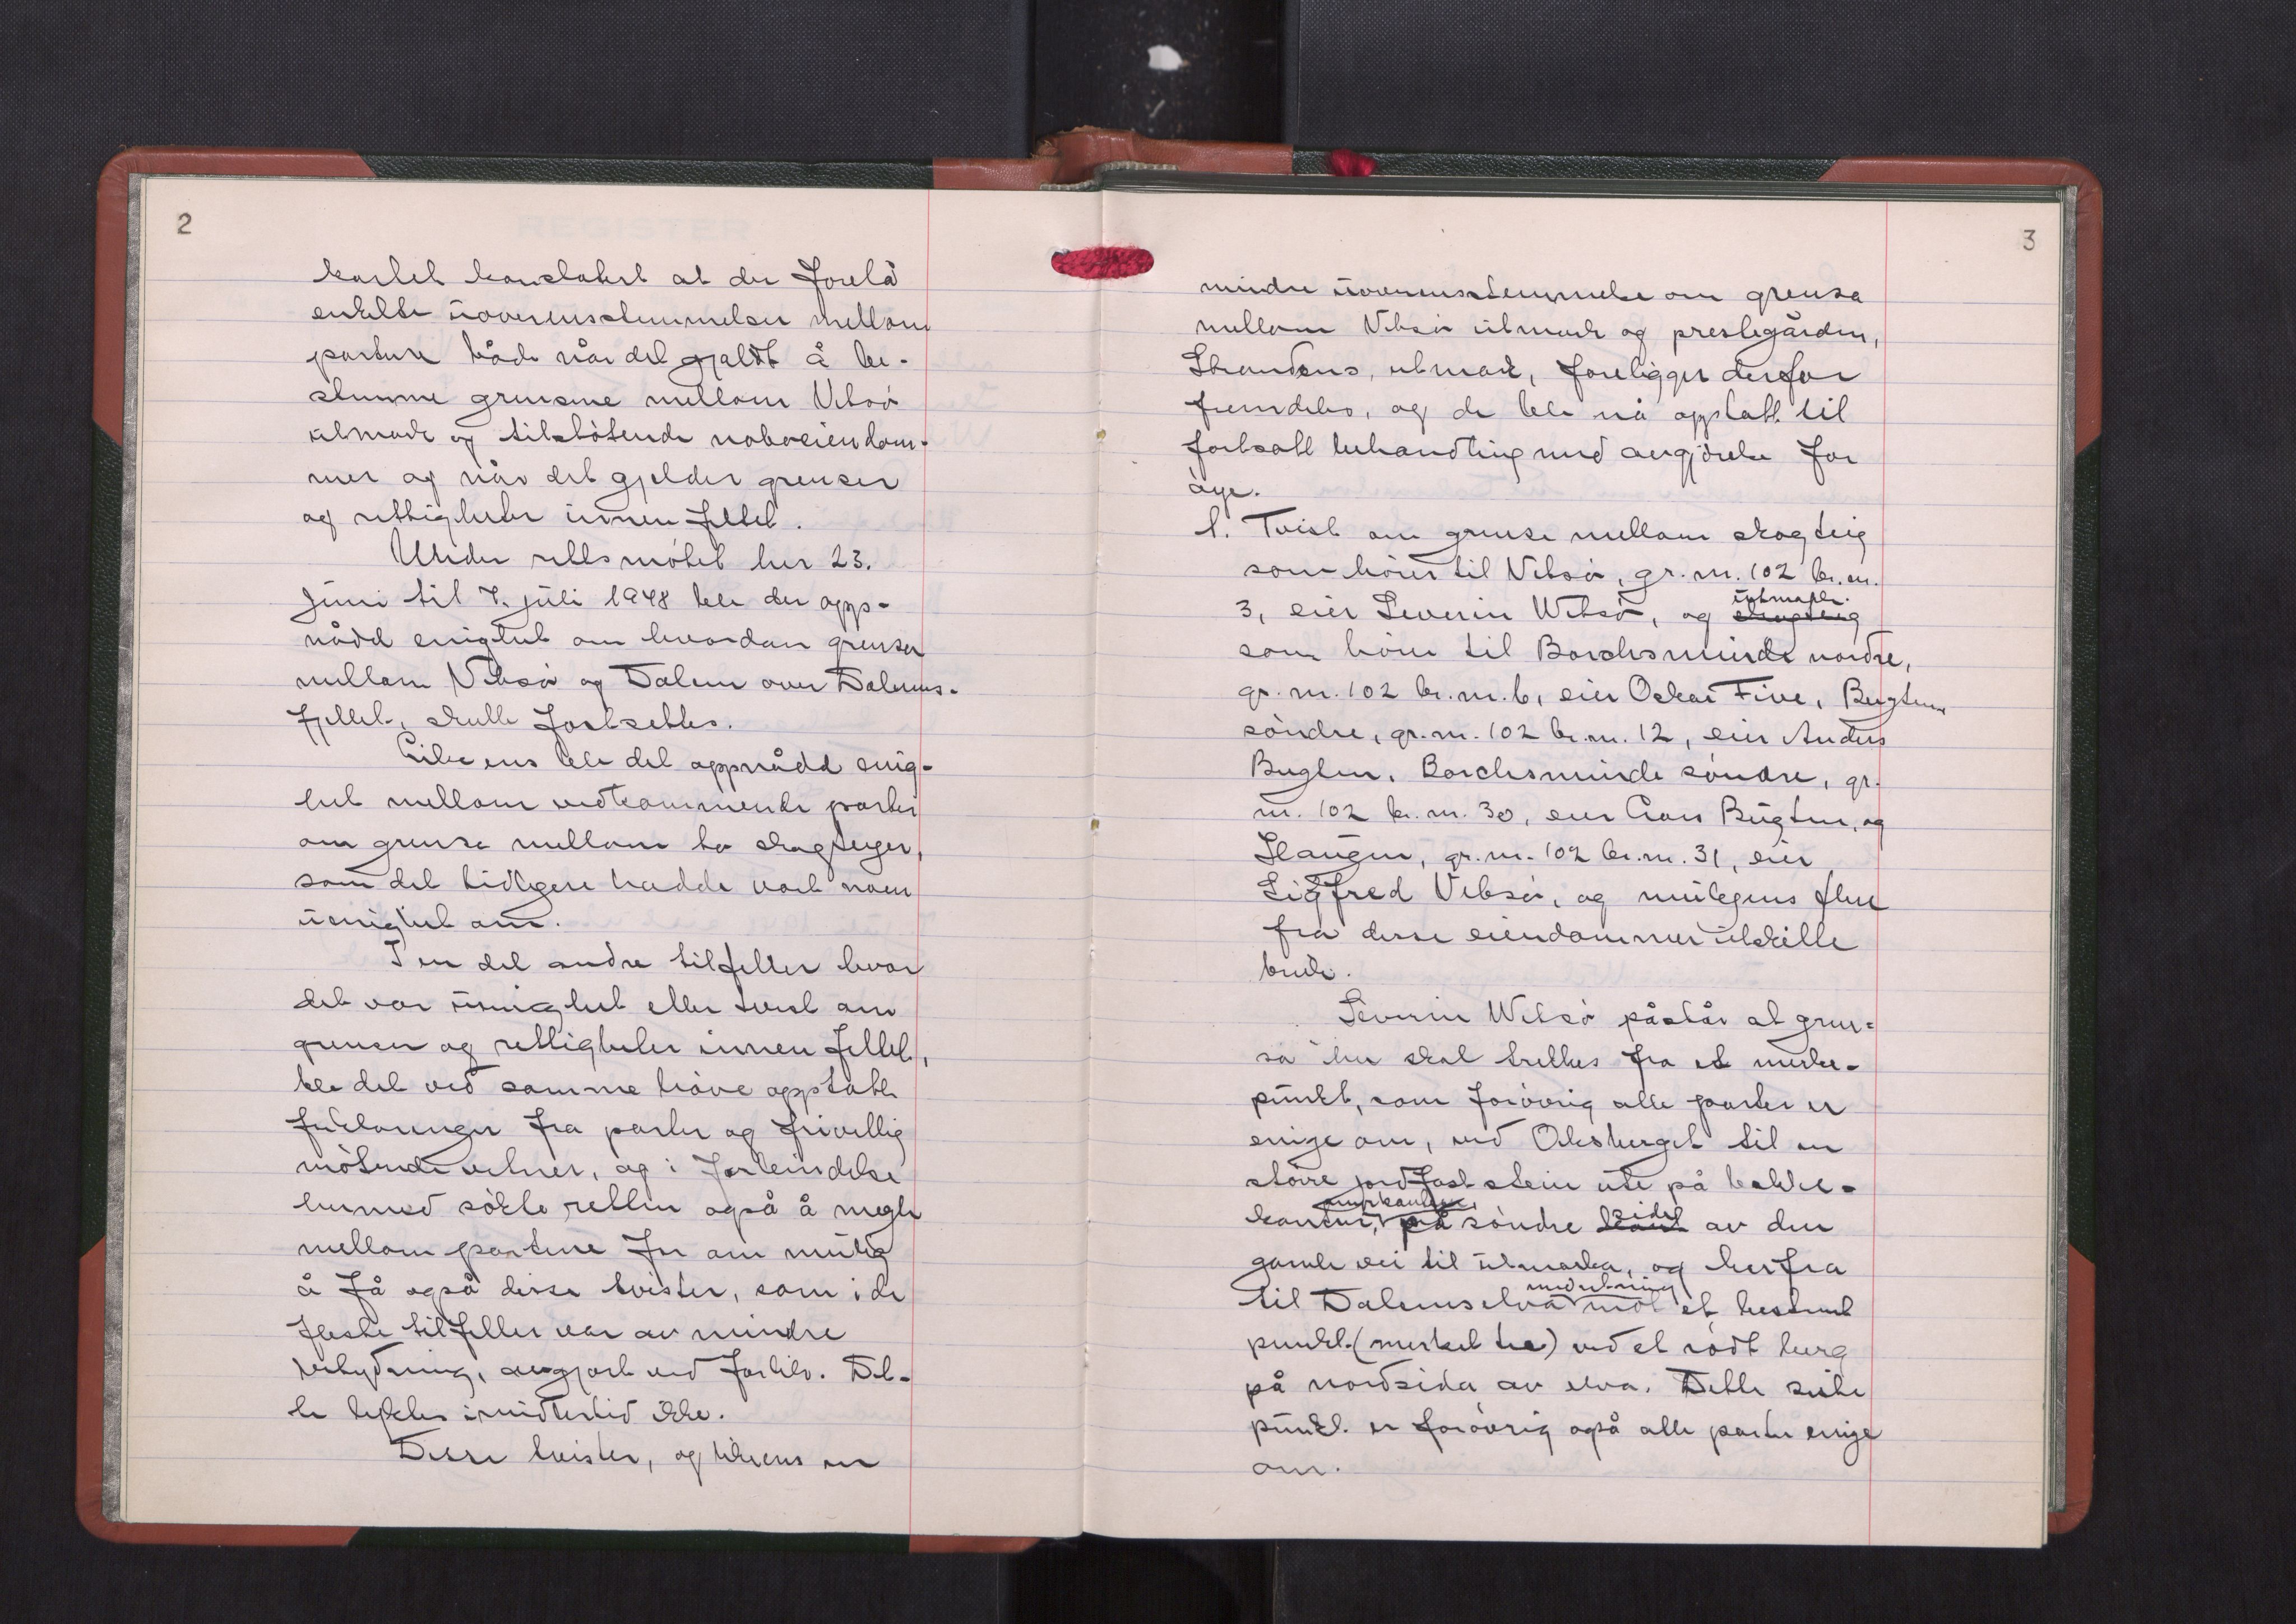 2
kartet konstatert at der forelå
enkelte uoverensstemmelser mellom
partene både når det gjaldt å be-
stemme grensene mellom Vebsø
utmark og tilstøtende naboeiendom-
mer og når det gjelder grenser
og rettigheter innen feltet.
Under rettsmøtet her 23.
juni til 7. juli 1948 ble der opp-
nådd enighet om hvordan grensen
mellom Vebsø og Dalem over Dalems-
fjellet, skulle fastsettes.
Likeens ble det oppnådd enig-
het mellom vedkommende parter
om grense mellom to skogteiger,
som det tidligere hadde vært noen
uenighet om.
I en del andre tilfeller hvor
det var uenighet eller tvist om
grenser og rettigheter innen feltet,
ble det ved samme høve opptatt
forklaringer fra parter og frivillig
møtende vitner, og i forbindelse
hermed søkte retten også å megle
mellom partene for om mulig
å få også disse tvister, som i de
fleste tilfeller var av mindre
betydning, avgjort ved forlik. Det-
te lyktes imidlertid ikke.
Disse tvister, og likeens en
3
mindre uoverensstemmelse om grensa
mellom Vebsø utmark og prestegården,
Strandens, utmark, foreligger derfor
fremdeles, og de ble nå opptatt til
fortsatt behandling med avgjørelse for
øye.
1. Tvist om grense mellom skogteig
som hører til Vebsø, gr. nr. 102 br. nr.
3, eier Severin Websø, og skogteig
som hører til Borchsminde nordre,
gr. nr. 102 br. nr. 6, eier Oskar Five, Bugten
søndre, gr. nr. 102 br. nr. 12, eier Anders
Bugten, Borchsminde søndre, gr.
nr. 102 br. nr. 30, eier Bugten, og
Haugen, gr. nr. 102 br. nr. 31, eier
Sigfred Vebsø, og muligens flere
fra disse eiendommer utskilte
bruk.
Severin Websø påstår at gren-
sa her skal trekkes fra et merke-
punkt, som forøvrig alle parter er
enige om, ved Oksberget til en
større jordfast stein ute på bakke-
kanten, på søndre side av den
gamle vei til utmarka, og herfra
til Dalemselva mot et bestemt
punkt (merket tre) ved et rødt berg
på nordsida av elva. Dette siste
punkt er forøvrig også alle parter enige
om.